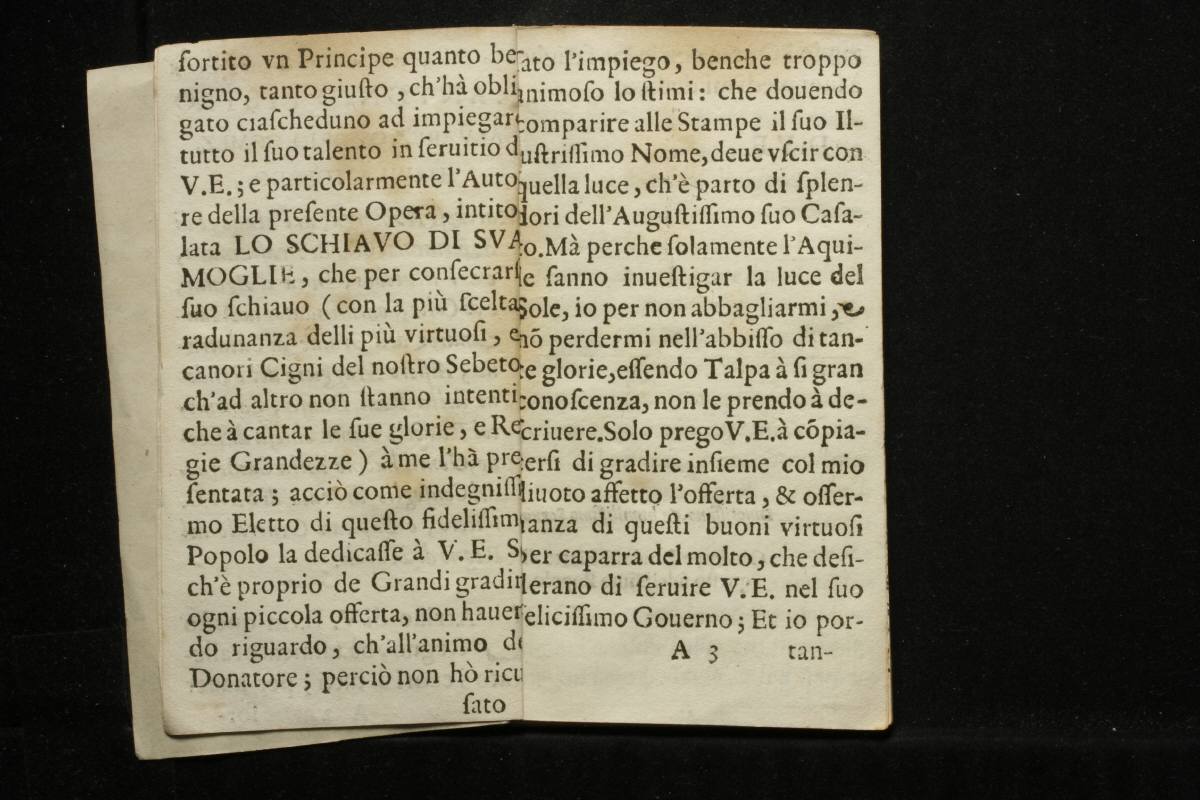 ſortito vn Principe quanto be-
nigno, tanto giuſto, ch'hà obli
gato ciaſcheduno ad impiegar
tutto il ſuo talento in ſeruitio d
V.E.; e particolarmente l'Auto
re della preſente Opera, intito
lata LO SCHIAVO DI SVA
MOGLIE, che per conſecrarſ
ſuo ſchiauo (con la più ſcelta
radunanza delli più virtuoſi, e
canori Cigni del noſtro Sebeto
ch'ad altro non ſtanno intenti
che à cantar le ſue glorie, e Re
gie Grandezze) à me l'hà pre
ſentata; acciò come indegniſſi
mo Eletto di queſto fideliſſim
Popolo la dedicaſſe à V. E. S
ch'è proprio de Grandi gradir
ogni piccola offerta, non hauer
do riguardo, ch'all'animo de
Donatore; perciò non hò ricu
ſato
ato l'impiego, benche troppo
animoſo lo ſtimi: che douendo
comparire alle Stampe il ſuo Il-
uſtriſſimo Nome, deue vſcir con
quella luce, ch'è parto di ſplen-
dori dell'Auguſtiſſimo ſuo Caſa-
to. Mà perche ſolamente l'Aqui-
le ſanno inueſtigar la luce del
Sole, io per non abbagliarmi, e
nõ perdermi nell'abbiſſo di tan-
te glorie, eſſendo Talpa à ſi gran
conoſcenza, non le prendo à de-
ſcriuere. Solo prego V.E. à cõpia-
cerſi di gradire inſieme col mio
diuoto affetto l'offerta, & oſſer-
uanza di queſti buoni virtuoſi
per caparra del molto, che deſi-
derano di ſeruire V.E. nel ſuo
feliciſſimo Gouerno; Et io por-
A 3 tan-